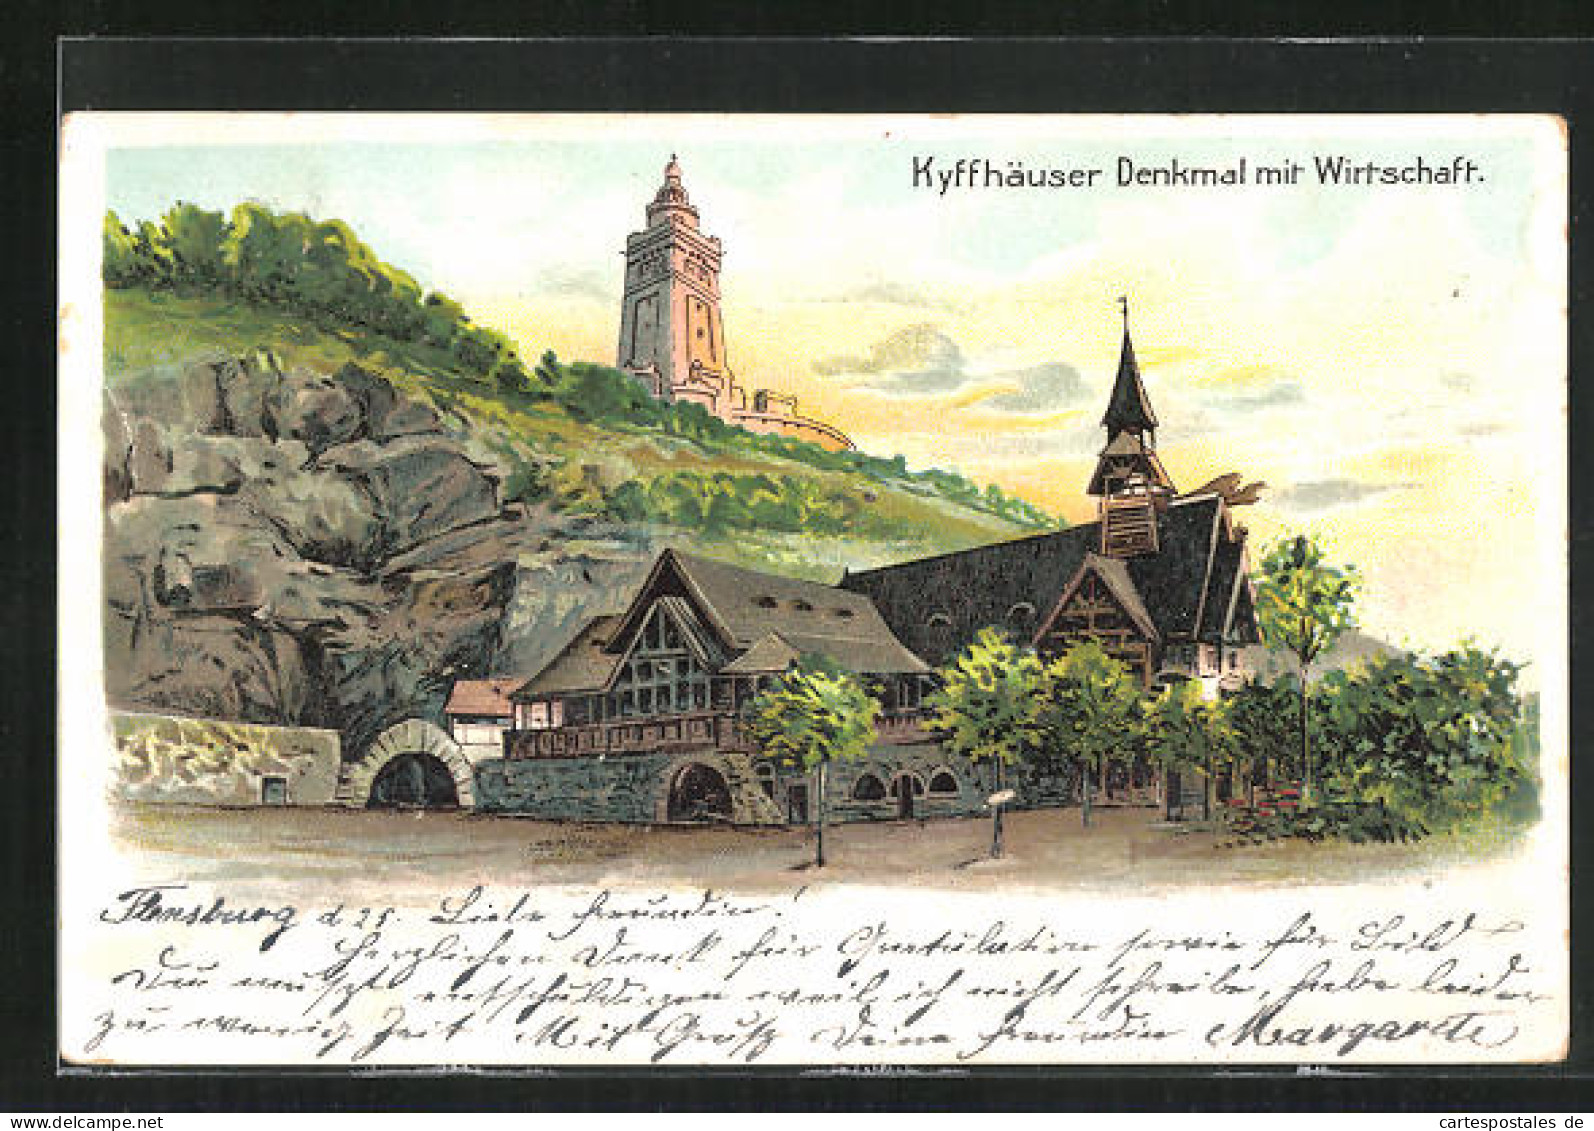 Kyffhäuser Denkmal mit Wirtschaft.
Flensburg d. 25. Liebe Freundin!
Herzlichen Dank für Gratulation sowie für Bild
Du mußt entschuldigen weil ich nicht schreibe, habe leider
zu wenig Zeit Mit Gruß Deine Freundin Margarete
cartespostales de